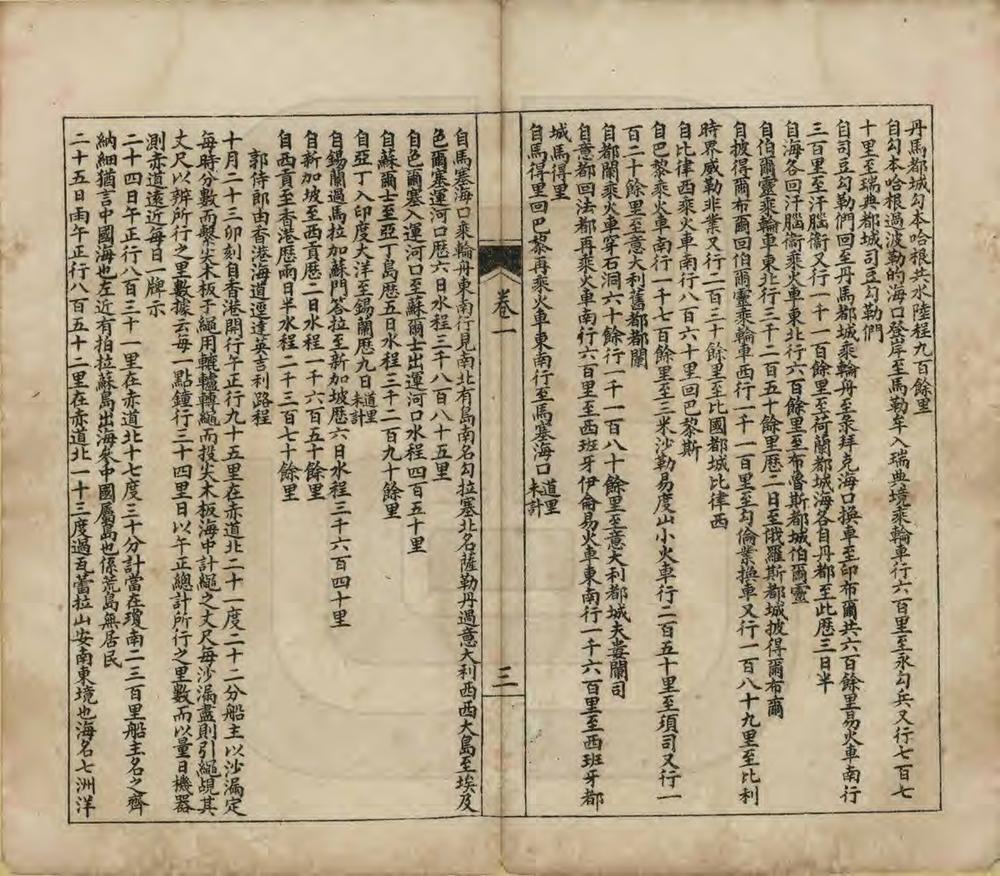 丹馬都城勾本哈根共水陸程九百餘里
自勾本哈根過波勒的海口登岸至馬勒牟入瑞典境乘輪車行六百里至永勾兵又行七百七
十里至瑞典都城司豆勾勒們
自司豆勾勒們回至丹馬都城乘輪舟至柰拜克海口換車至印布爾共六百餘里易火車南行
三百里至汗腦衞又行一千一百餘里至荷蘭都城海各自丹都至此歷三日半
自海各回汗腦衞乘火車東北行六百餘里至布魯斯都城伯爾靈
自伯爾靈乘輪車東北行三千二百五十餘里歷二日至俄羅斯都城披得爾布爾
自披得爾布爾回伯爾靈乘輪車西行一千一百里至勾倫業換車又行一百八十九里至比利
時界威勒非業又行二百三十餘里至比國都城比律西
自比律西乘火車南行八百六十里回巴黎斯
自巴黎乘火車南行一千七百餘里至三米沙勒易度山小火車行二百五十里至須司又行一
百二十餘里至意大利舊都都闌
自都闌乘火車穿石洞六十餘行一千一百八十餘里至意大利都城夫婁闌司
自意都回法都再乘火車南行六百里至西班牙伊侖易火車東南行一千六百里至西班牙都
城馬得里
自馬得里回巴黎再乘火車東南行至馬塞海口道里未計
卷一
三
自馬塞海口乘輪舟東南行見南北有島南名勾拉塞北名薩勒丹過意大利西西大島至埃及
色爾塞運河口歷六日水程三千八百八十五里
自色爾塞入運河口至蘇爾士出運河口水程四百五十里
自蘇爾士至亞丁島歷五日水程三千二百九十餘里
自亞丁入印度大洋至錫蘭歷九日道里未計
自錫蘭過馬拉加蘇門答拉至新加坡歷六日水程三千六百四十里
自新加坡至西貢歷二日水程一千六百五十餘里
自西貢至香港歷兩日半水程二千三百七十餘里
郭侍郎由香港海道逕達英吉利路程
十月二十三卯刻自香港開行午正行九十五里在赤道北二十一度二十二分船主以沙漏定
每時分數而繫尖木板于繩用轆轤轉繩而投尖木板海中計繩之丈尺每沙漏盡則引繩覘其
丈尺以辨所行之里數據云每一點鐘行三十四里日以午正總計所行之里數而以量日機器
測赤道遠近每日一牌示
二十四日午正行八百三十一里在赤道北十七度三十分計當在瓊南二三百里船主名之齊
納細猶言中國海也左近有柏拉蘇島出海參中國屬島也係荒島無居民
二十五日雨午正行八百五十二里在赤道北一十三度過瓦蕾拉山安南東境也海名七洲洋